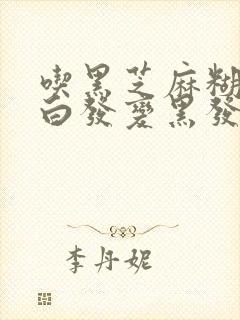 喫黑芝麻糊
白發變黑發
李丹妮